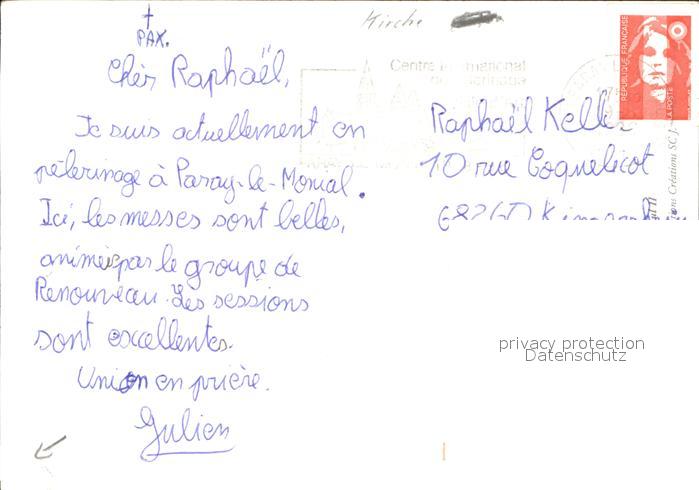 Kirche
PAX.
Chèr Raphaël,
Je suis actuellement en
pèlerinage à Paray-le-Monial.
Ici, les messes sont belles,
animées par le groupe de
Renouveau. Les sessions
sont excellentes.
Union en prière.
Julien
Centre International
de Pèlerinage
RÉPUBLIQUE FRANÇAISE
LA POSTE
Raphaël Kell
10 rue Coquelicot
privacy protection
Datenschutz
Créations SCJ